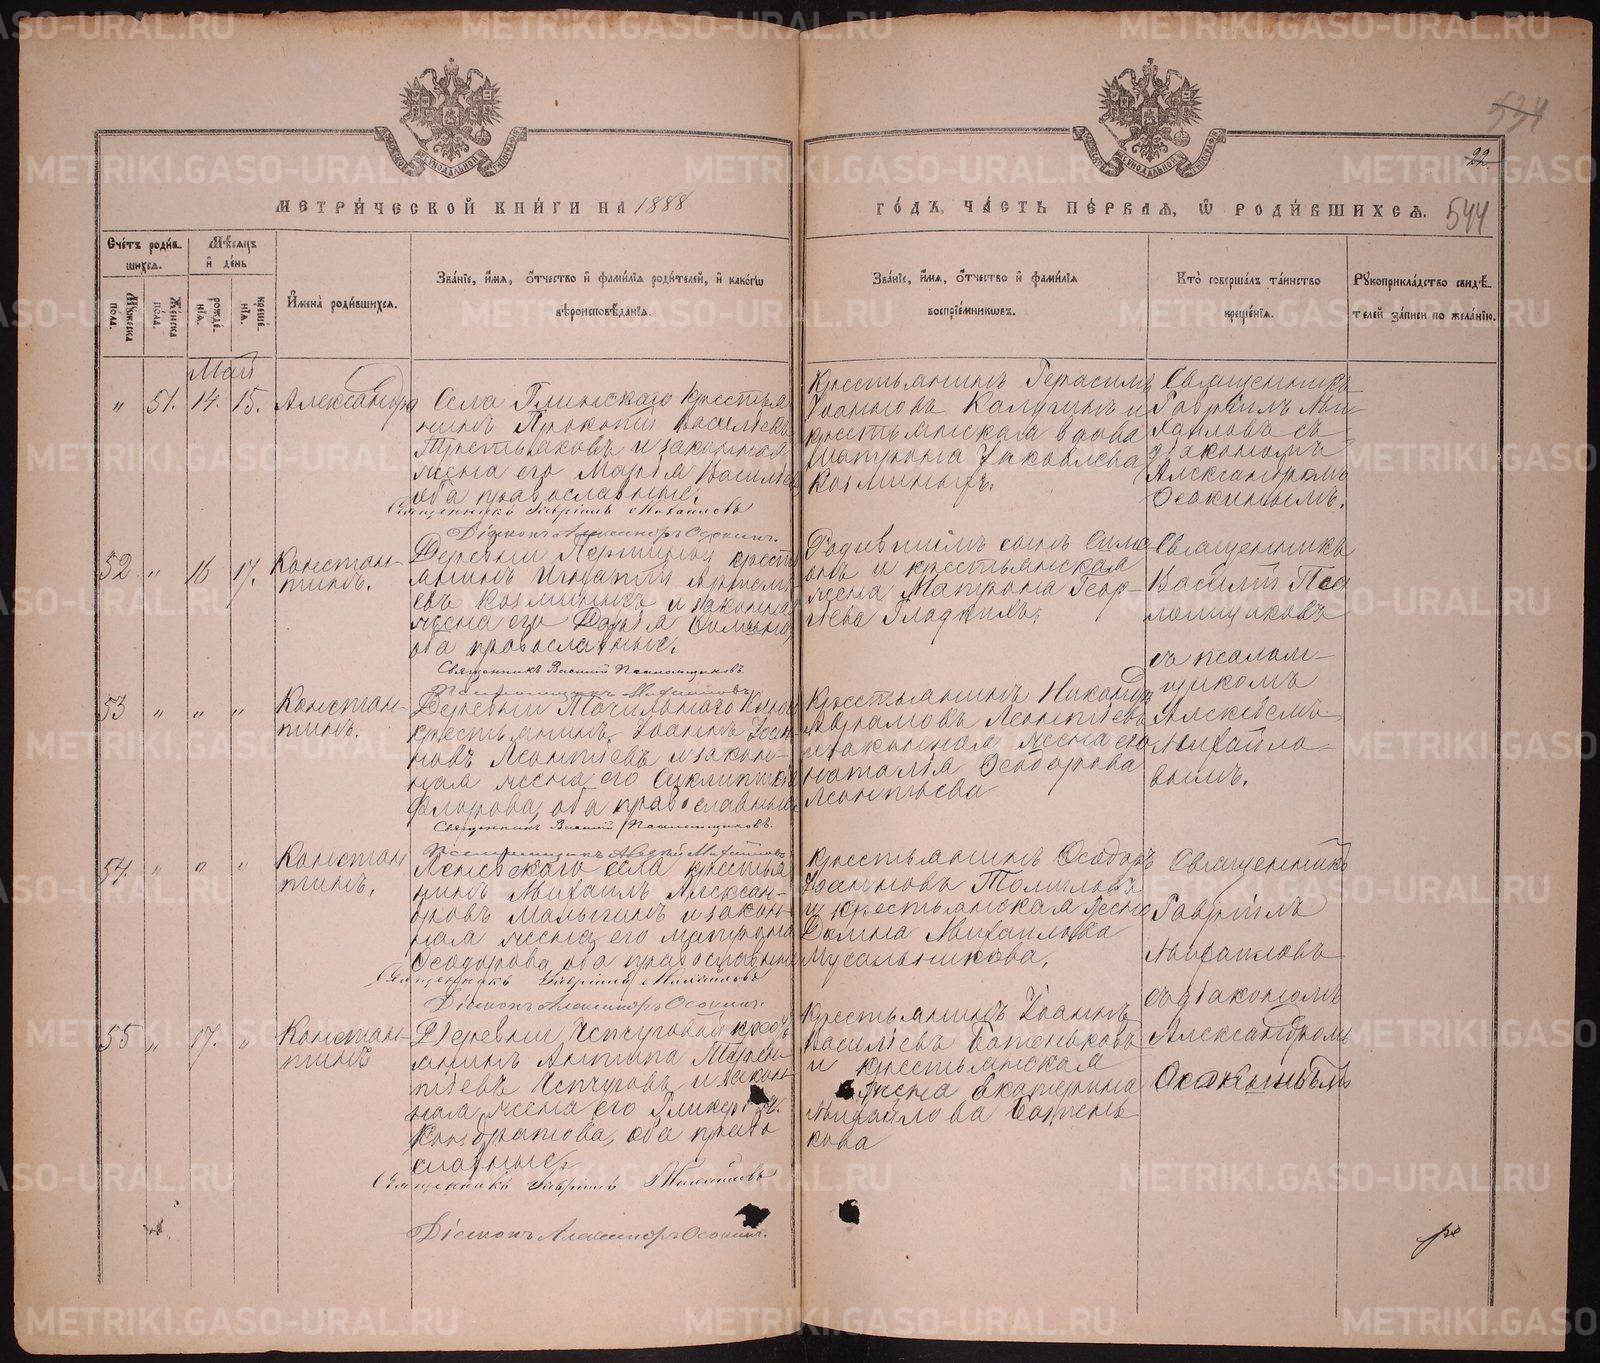 534
22
544
МЕТРИ́ЧЕСКОЙ КНИ́ГИ НА 1888
ГО́ДЪ, ЧА́СТЬ ПЕ́РВАЯ, Ѡ РОДИ́ВШИХСЯ.
Сче́тъ роди́вшихся.
Мѣ́сяцъ и҆ де́нь
Му́жеска по́ла.
Же́нска по́ла.
рожде́нїя.
креще́нїя.
И҆мена̀ роди́вшихся.
Зва́нїе, и҆́мя, ѻ҆́тчество и҆ фами́лїя роди́телей, и҆ како́гѡ вѣроисповѣ́данїя.
Зва́нїе, и҆́мя, ѻ҆́тчество и҆ фами́лїя воспрїе́мникѡвъ.
Кто̀ соверша́лъ та́инство креще́нїя.
Рꙋкоприкла́дство свидѣ́телей за́писи по жела́нїю.
Май
" 51. 14. 15. Александра
Села Глинскаго крестья
нинъ Прокопій Васильевъ
Третьяковъ и законная
жена его Марія Василье
оба православные.
Священникъ Гавріилъ Михайловъ
Діаконъ Александръ Осокинъ.
Крестьянинъ Герасимъ
Іоанновъ Калугинъ и
крестьянская вдова
Матрона Іаковлева
Козминыхъ.
Священникъ
Гавріилъ Ми-
хаиловъ съ
діакономъ
Александромъ
Осокинымъ.
52 " 16 17. Констан-
тинъ.
Деревни
крестьянинъ Игнатій
евъ Козминыхъ и законная
жена его Дарія
оба православные.
Священникъ Василій Псаломщиковъ
Псаломщикъ Михайловъ
Родившимъ сынъ Симе
онъ и крестьянская
жена Матрона Геор-
гіева Гладкихъ.
Священникъ
Василій Пса
ломщиковъ
съ псалом-
щикомъ
Алексѣемъ
Михайло-
вымъ.
53 " " " Констан-
тинъ.
Деревни Точильнаго Ключа
крестьянинъ Іоаннъ Іоан
новъ Леонтіевъ и закон-
ная жена его
Флорова, оба православные
Священникъ Василій Псаломщиковъ.
Псаломщикъ Алексѣй Михайловъ
Крестьянинъ Никандръ
Аврамовъ Леонтіевъ
и законная жена его
Наталія Ѳеодорова
Леонтьева
54 " " " Констан
тинъ.
села крестья
нинъ Михаилъ Алексан-
дровъ Малыгинъ и закон
ная жена его Матрона
Ѳеодорова, оба православные
Священникъ Гавріилъ Михайловъ
Діаконъ Александръ Осокинъ.
Крестьянинъ Ѳеодоръ
Іоанновъ Томиловъ
и крестьянская жена
Михаилова
Мусальникова.
Священникъ
Гавріилъ
Михаиловъ
съ діакономъ
Александромъ
Осокинымъ
55 " 17. " Констан-
тинъ
Деревни Исчуговой кресть
янинъ Антипа
тіевъ Исчуговъ и закон
ная жена его Гликерія
Кондратова, оба право
славные.
Священникъ Гавріилъ Михайловъ
Діаконъ Александръ Осокинъ.
Крестьянинъ Іоаннъ
Василіевъ Батеньковъ
и крестьянская
жена Екатерина
Михайлова Батень-
кова
METRIKI.GASO-URAL.RU